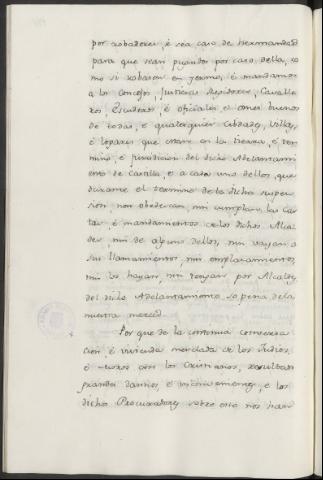 por robadores, é sea caso de Hermandad
para que sean punidos por caso della, co
mo si robasen en yermo; é mandamos
a los Concejos, Justicias, Regidores, Cavalle
ros, Escuderos, é oficiales, é omes buenos
de todas, é qualesquier Cibdades, Villas,
é logares que estan en la tierra, é ter
mino, é jurisdicion del dicho Adelantami
ento de Castilla, é a cada uno dellos, que
durante el termino de la dicha suspen
sion, non obedezcan, nin cumplan las car
tas, é mandamientos de los dichos Alcal
des, nin de alguno dellos, nin vayan a
sus llamamientos, nin emplazamientos,
nin los hayan, nin tengan por Alcaldes
del dicho Adelantamiento, so pena de la
nuestra merced.
Por que de la continua conversa
cion é vivienda mezclada de los Judios,
é Moros con los Cristianos, resultan
grandes daños, é inconvenientes, é los
dichos Procuradores sobre esto nos han